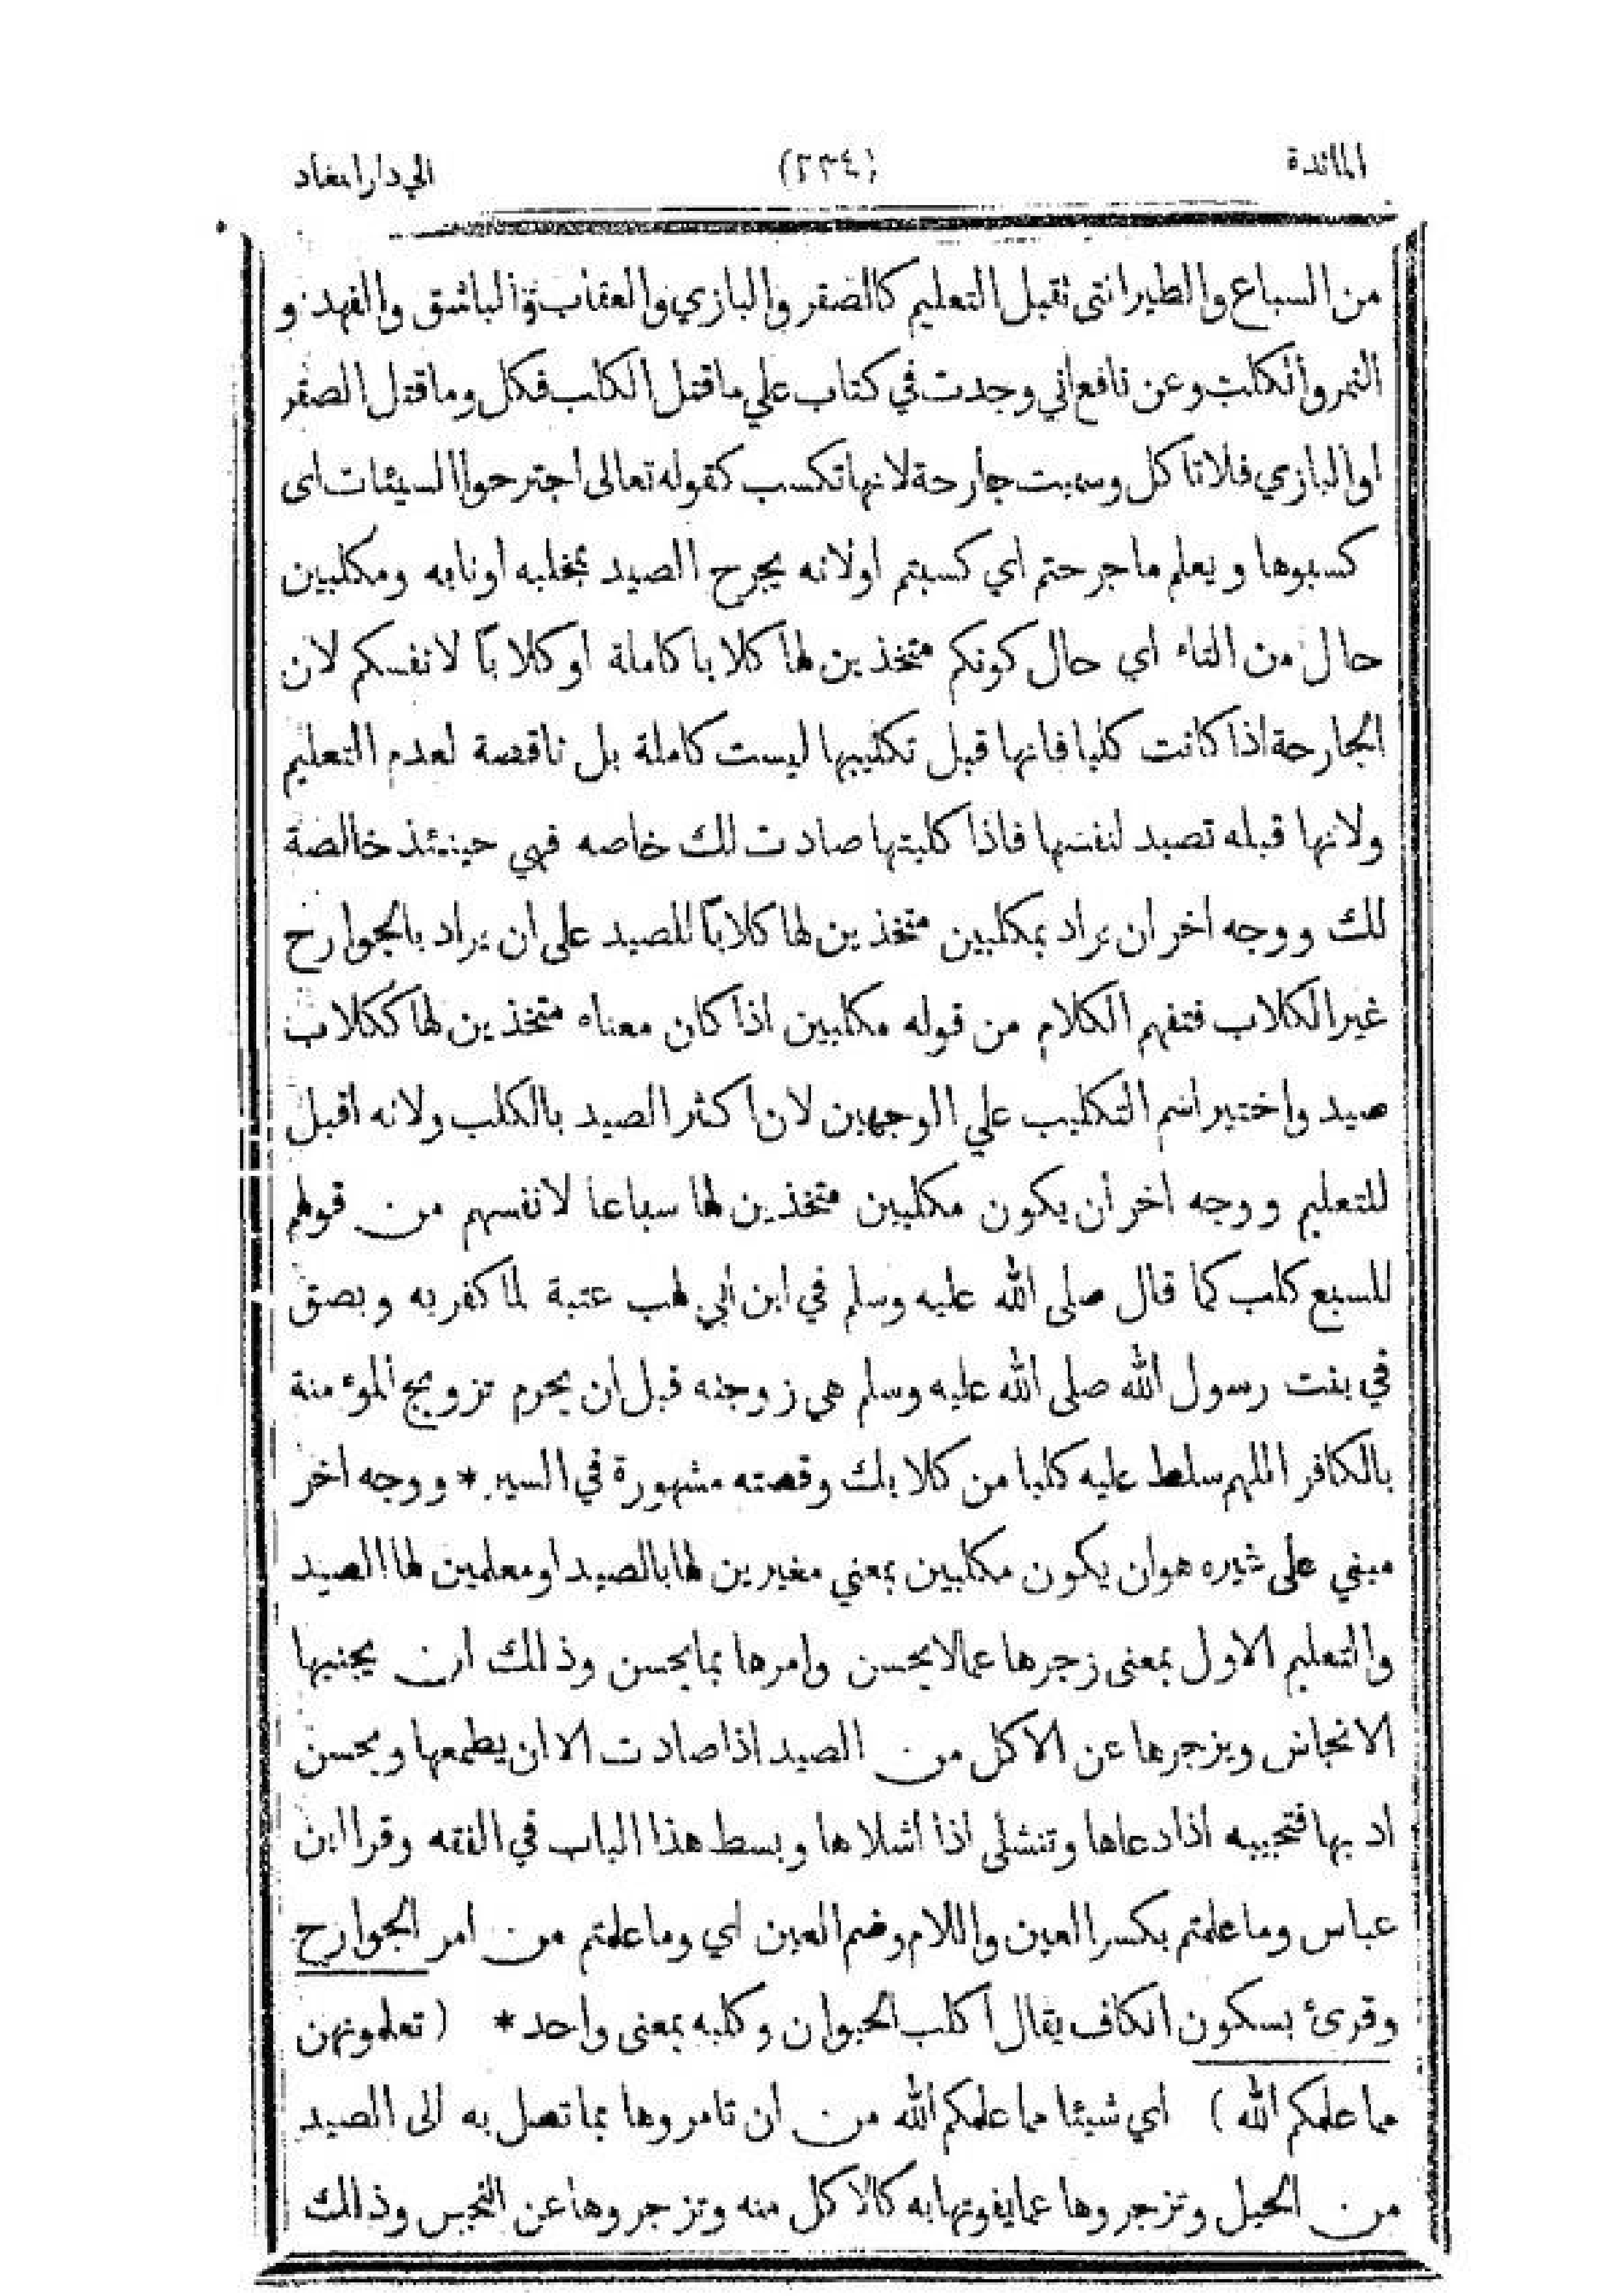 المائدة (٢٣٤) الى دار المعاد
من السباع والطير التي تقبل التعليم كالصقر والبازي والعقاب والباشق والفهد و
النمر والكلب وعن نافع اني وجدت في كتاب علي ما قتل الكلب فكل وما قتل الصقر
او البازي فلا تاكل وسميت جارحة لانها تكسب كقوله تعالى اجترحوا السيئات اى
كسبوها ويعلم ما جرحتم اي كسبتم او لانه يجرح الصيد بمخلبه او نابه ومكلبين
حال من التاء اي حال كونكم متخذين لها كلابا كاملة او كلاباً لانفسكم لان
الجارحة اذا كانت كلبا فانها قبل تكليبها ليست كاملة بل ناقصة لعدم التعليم
ولانها قبله تصيد لنفسها فاذا كلبتها صادت لك خاصه فهي حينئذ خالصة
لك ووجه اخر ان يراد بمكلبين متخذين لها كلاباً للصيد على ان يراد بالجوارح
غير الكلاب فتفهم الكلام من قوله مكلبين اذا كان معناه متخذين لها ككلاب
صيد واختير اسم التكليب علي الوجهين لان اكثر الصيد بالكلب ولانه اقبل
للتعليم ووجه اخر أن يكون مكلبين متخذين لها سباعا لانفسهم من قولهم
للسبع كلب كما قال صلى الله عليه وسلم في ابن ابي لهب عتبة لما كفر به وبصق
في بنت رسول الله صلى الله عليه وسلم هي زوجته قبل أن يحرم تزويج المؤمنة
بالكافر اللهم سلط عليه كلبا من كلابك وقصته مشهورة في السير * ووجه اخر
مبني على شيره هو ان يكون مكلبين بمعني مغيرين لها بالصيد او معلمين لها الصيد
والتعليم الاول بمعنى زجرها عما لا يحسن وامرها بما يحسن وذلك ان يجنبها
الانجاس ويزجرها عن الاكل من الصيد اذا صادت الا ان يطمعها ويحسن
ادبها فتجيبه اذا دعاها وتنشلى اذا أشلاها وبسط هذا الباب في الفقه وقرا ابن
عباس وما علمتم بكسر العين واللام وضم العين اي وما علمتم من امر الجوارح
وقرئ بسكون الكاف يقال أكلب الحيوان وكلبه بمعنى واحد * ( تعلمونهن
مما علمكم الله ) اي شيئا مما علمكم الله من ان تامروها بما تصل به الى الصيد
من الحيل وتزجروها عما يفوتها به كالاكل منه وتزجروها عن النجس وذلك